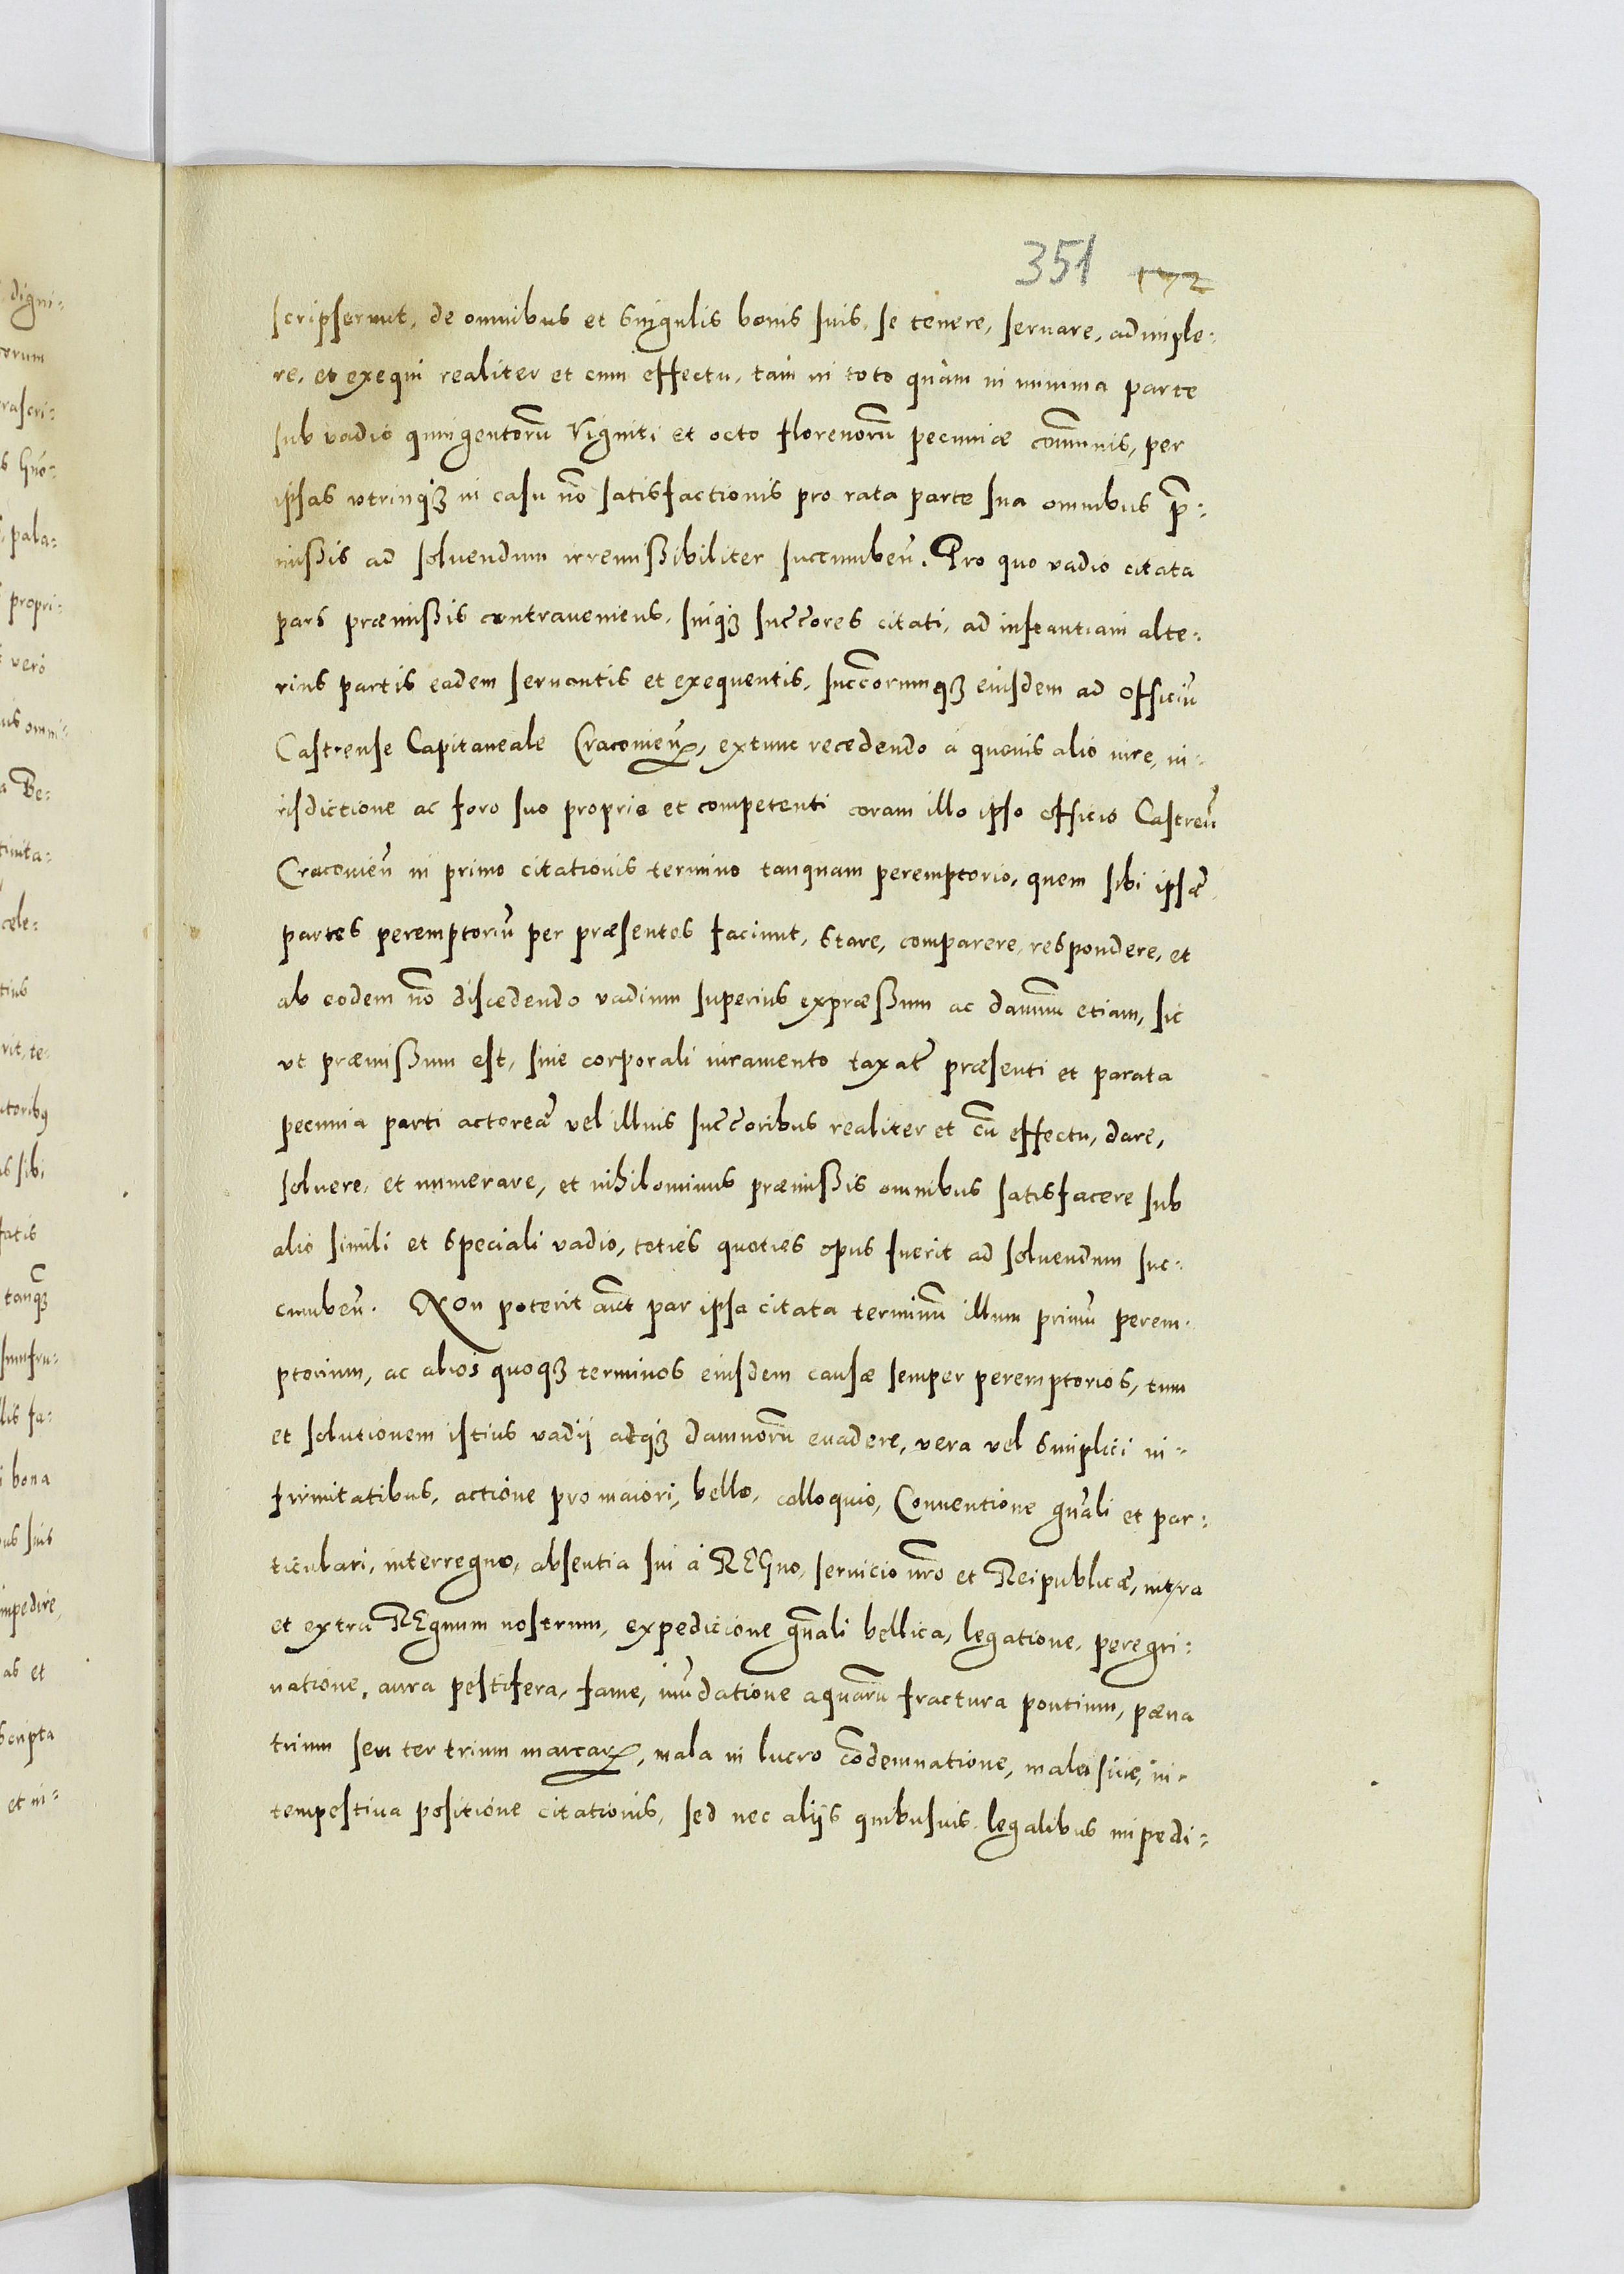 351 172
scripserunt, de omnibus et singulis bonis suis, se tenere, seruare, adimple:
re, et exequi realiter et cum effectu, tam in toto quàm in minima parte
sub vadio quingentorũ Viginti et octo florenorũ pecuniæ com̃unis, per
ipsas vtrinqꝫ in casu nõ satisfactionis pro rata parte sua omnibus p̃:
missis ad soluendum irremissibiliter succumbeñ. Pro quo vadio citata
pars præmissis contraueniens, suiqꝫ succ̃ores citati, ad instantiam alte:
rius partis eadem seruantis et exequentis, succ̃orumqꝫ eiusdem ad officiũ
Castrense Capitaneale Cracovieñ, extunc recedendo à quouis alio iure, iu:
risdictione ac foro suo proprio et competenti coram illo ipso officio Castreñ
Cracovieñ in primo citationis termino tanquam peremptorio, quem sibi ipsæ
partes peremptoriũ per præsentes faciunt, stare, comparere, respondere, et
ab eodem nõ discedendo vadium superius expræssum ac damnũ etiam, sic
vt præmissum est, sine corporali iuramento taxat̃ præsenti et parata
pecunia parti actoreæ vel illius succ̃oribus realiter et cũ effectu, dare,
soluere, et numerare, et nihilominus præmissis omnibus satisfacere sub
alio simili et speciali vadio, toties quoties opus fuerit ad soluendum suc:
cumbeñ. Non poterit aũt par ipsa citata terminũ illum primũ perem:
ptorium, ac alios quoqꝫ terminos eiusdem causæ semper peremptorios, tum
et solutionem istius vadij atqꝫ damnorũ euadere, vera vel simplici in:
firmitatibus, actione pro maiori, bello, colloquio, Conuentione gñali et par:
ticulari, interregno, absentia sui à REGno, seruicio nr̃o et Reipublicæ, intra
et extra REgnum nostrum, expedicione gñali bellica, legatione, peregri:
natione, aura pestifera, fame, inũdatione aquarũ fractura pontium, pæna
trium seu ter trium marcarꝝ, mala in lucro cõdemnatione, male siue, in:
tempestiua positione citationis, sed nec aliis quibusuis legalibus impedi: